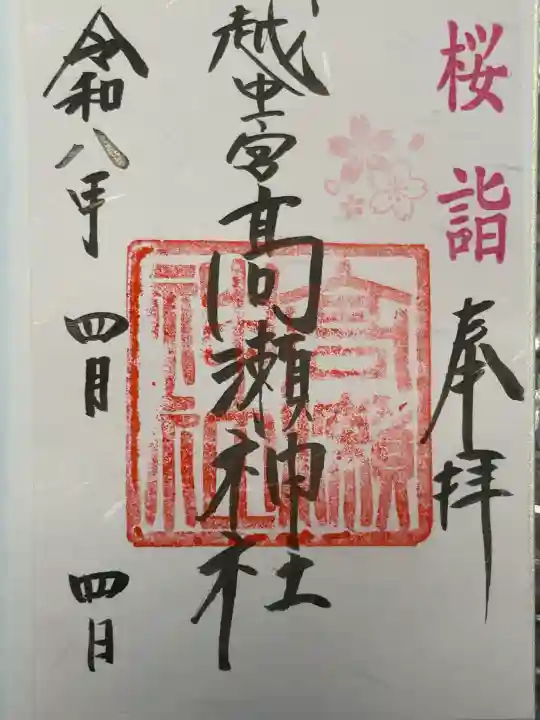 桜詣
奉拝
越中一宮高瀬神社
高瀬神社
令和八年
四月
四日